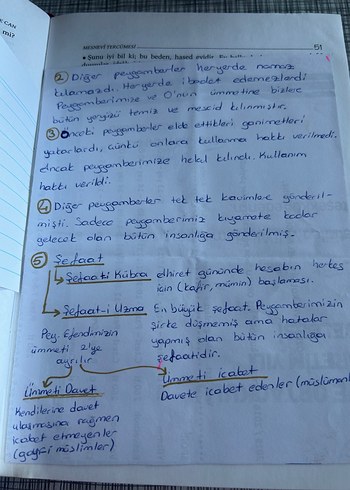 CAN
mi?
MESNEVİ TERCÜMESİ
51
• Şunu iyi bil ki; bu beden, hased evidir.
② Diğer peygamberler heryerde namaz
kılamazdı. Heryerde ibadet edemezlerdi
Peygamberimize ve O'nun ümmetine bizlere
bütün yeryüzü temiz ve mescid kılınmıştır.
③ Önceki peygamberler elde ettikleri ganimetleri
yakarlardı, çünkü onlara kullanma hakkı verilmedi.
Ancak peygamberimize helal kılındı. Kullanım
hakkı verildi.
④ Diğer peygamberler tek tek kavimlere gönderil-
mişti. Sadece peygamberimiz kıyamete kadar
gelecek olan bütün insanlığa gönderilmiş.
⑤ Şefaat
Şefaati Kübra ahiret gününde hesabın herkes
için (kafir, mümin) başlaması.
Şefaat-i Uzma En büyük şefaat. Peygamberimizin
şirke düşmemiş ama hatalar
yapmış olan bütün insanlığa
şefaatidir.
Peg. Efendimizin
ümmeti 2'ye
ayrılır
Ümmeti Davet
Kendilerine davet
ulaşmasına rağmen
icabet etmeyenler
(gayri müslimler)
Ümmeti icabet
Davete icabet edenler (müslüman